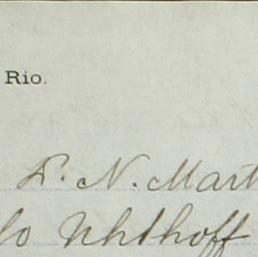 Rio.
L. N. Mart
lo Uhthoff